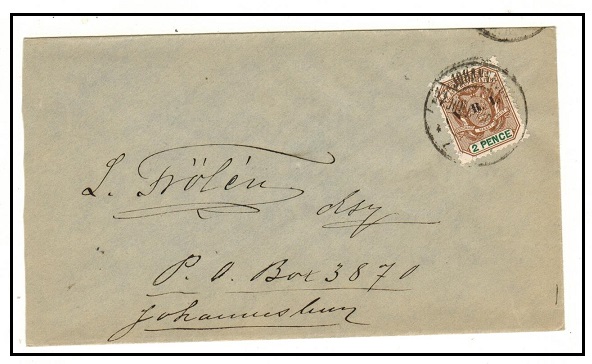 2 PENCE
L. Frölén
Esq
P. O. Box 3870
Johannesburg